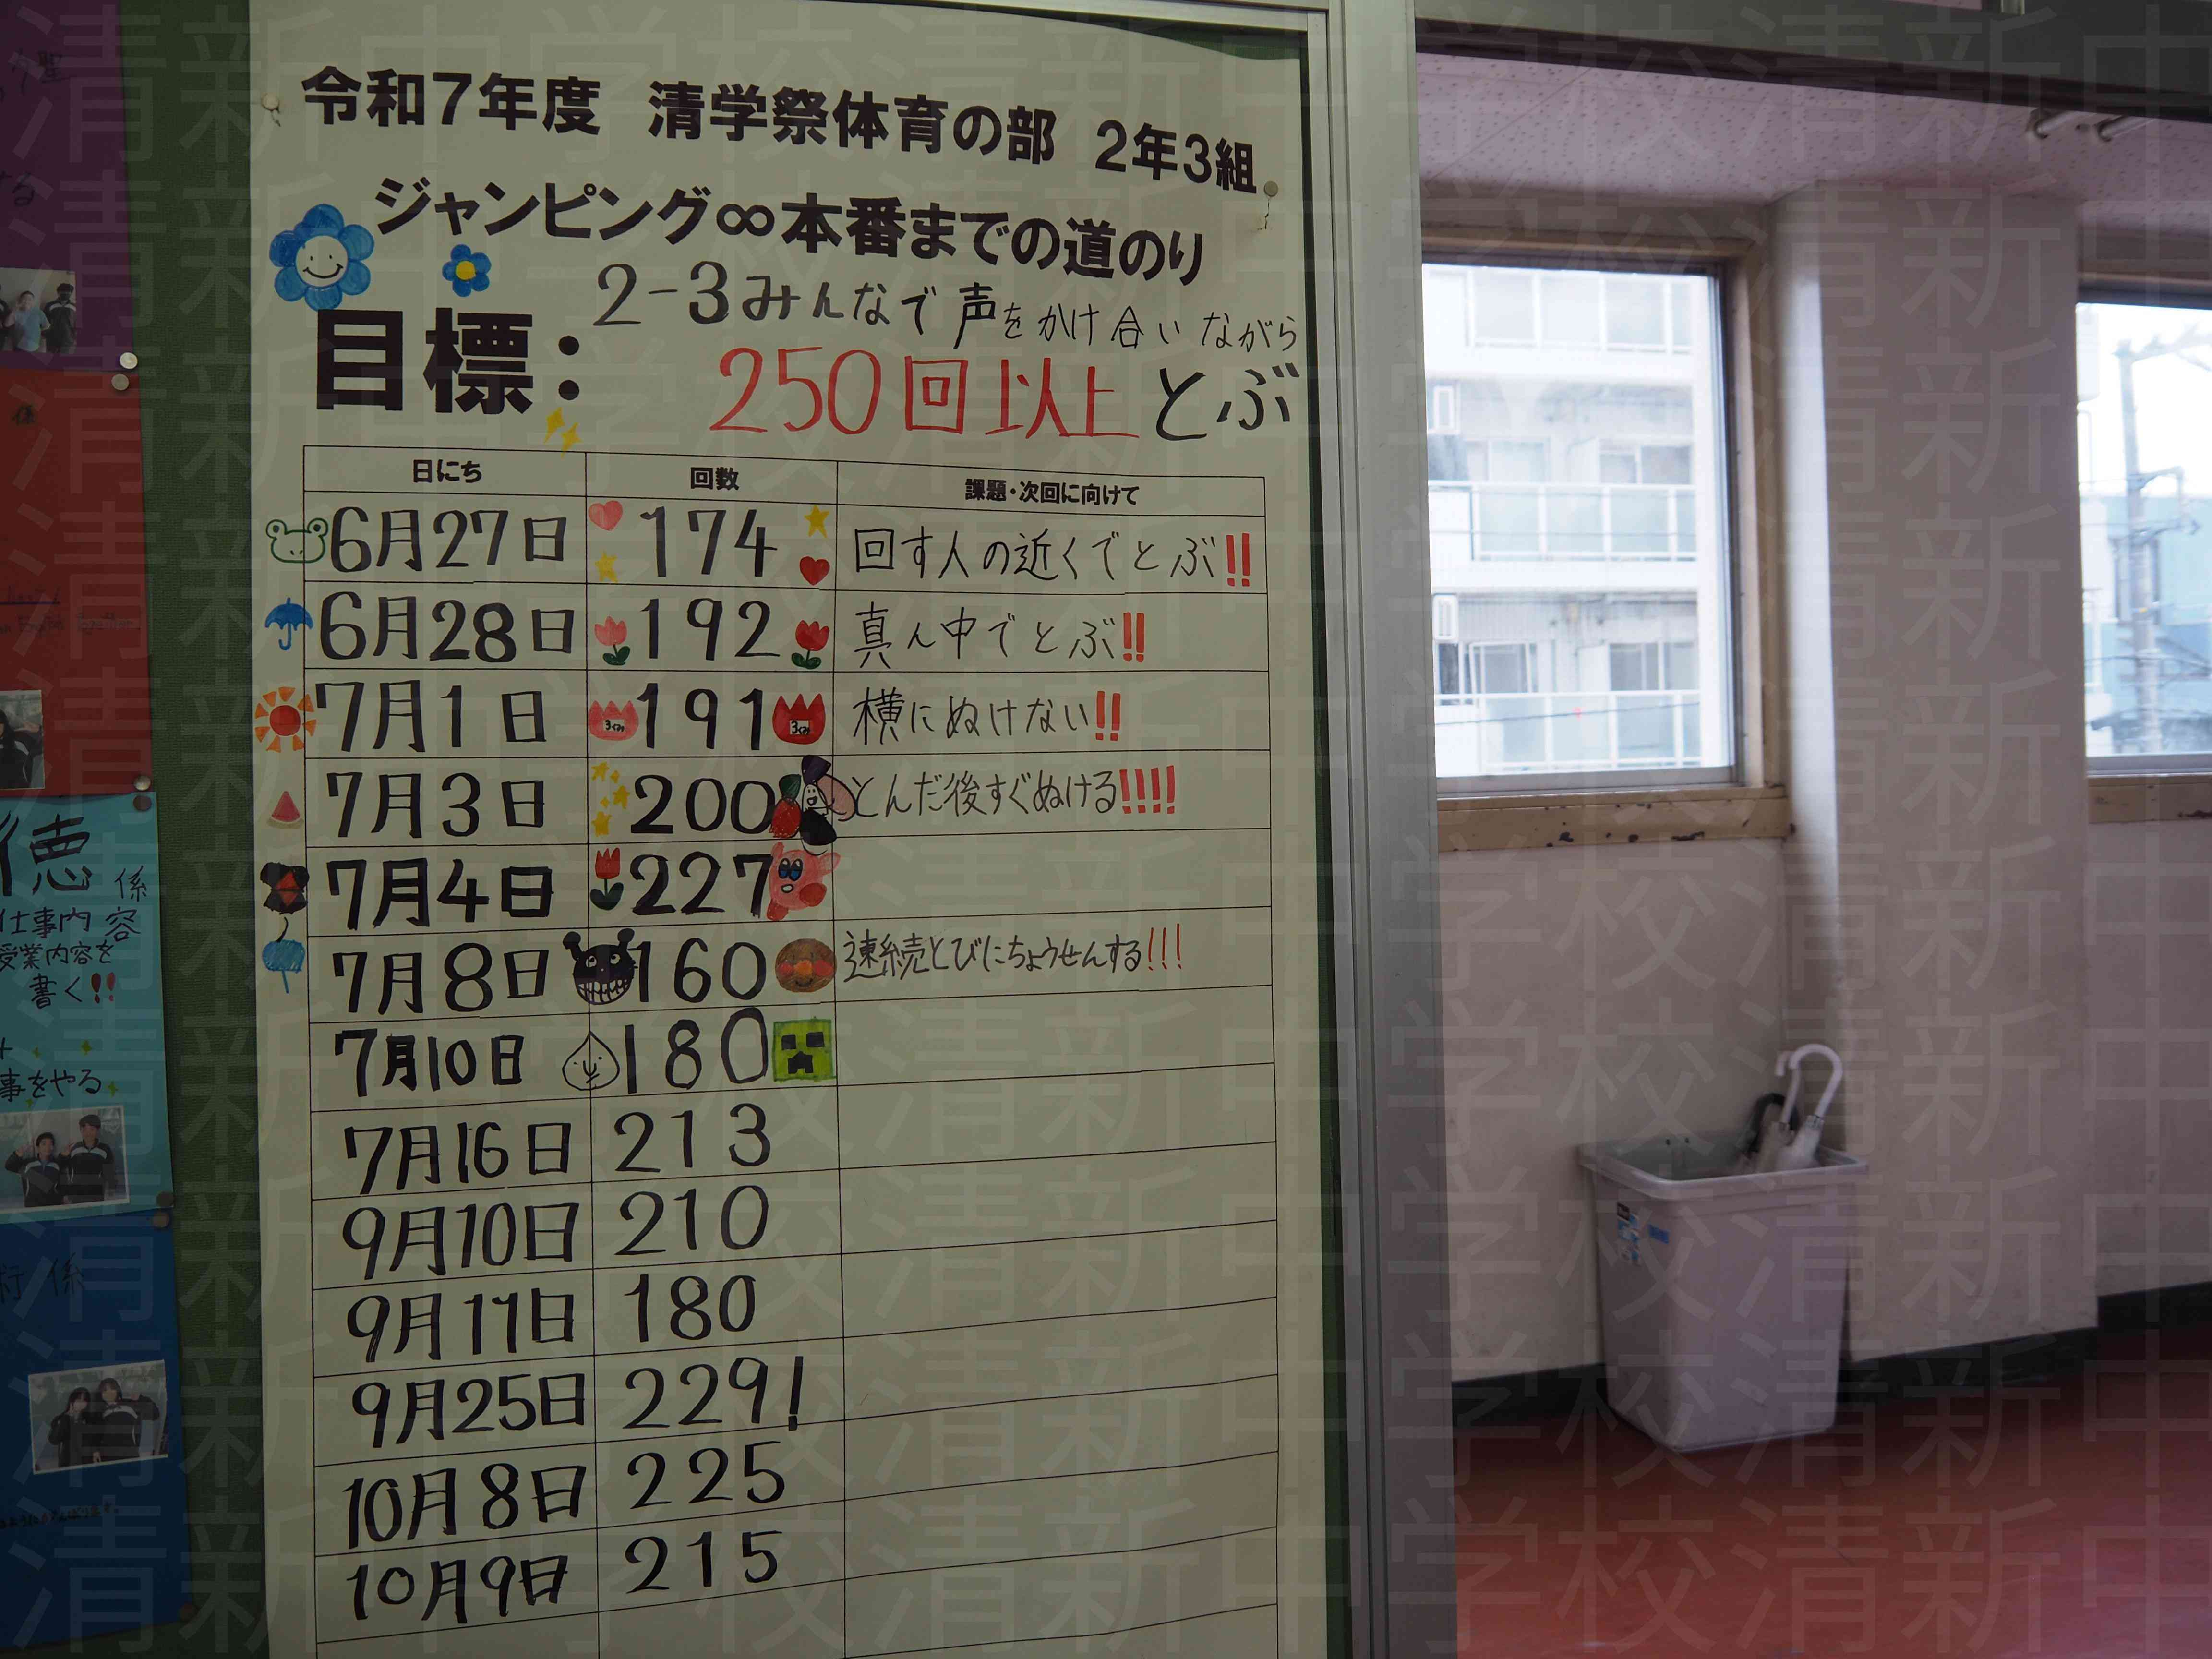 令和7年度 清学祭体育の部 2年3組
ジャンピング∞本番までの道のり
目標：2-3みんなで声をかけ合いながら
250回以上とぶ
日にち 回数 課題・次回に向けて
6月27日 174 回す人の近くでとぶ!!
6月28日 192 真ん中でとぶ!!
7月1日 191 横にぬけない!!
7月3日 200 とんだ後すぐぬける!!!!
7月4日 227
7月8日 160 連続とびにちょうせんする!!!
7月10日 180
7月16日 213
9月10日 210
9月11日 180
9月25日 229!
10月8日 225
10月9日 215
係
徳係
仕事内容
授業内容を
書く!!
事をやる
術係
清新中学校清新中学校清新中